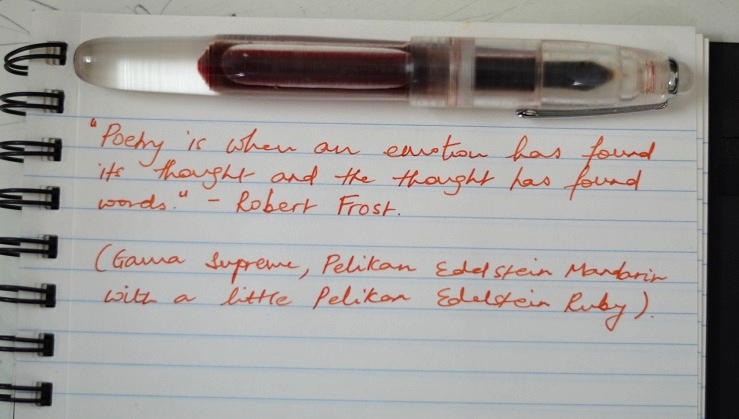 "Poetry is when an emotion has found
its thought and the thought has found
words." - Robert Frost.
(Gama Supreme, Pelikan Edelstein Mandarin
with a little Pelikan Edelstein Ruby).